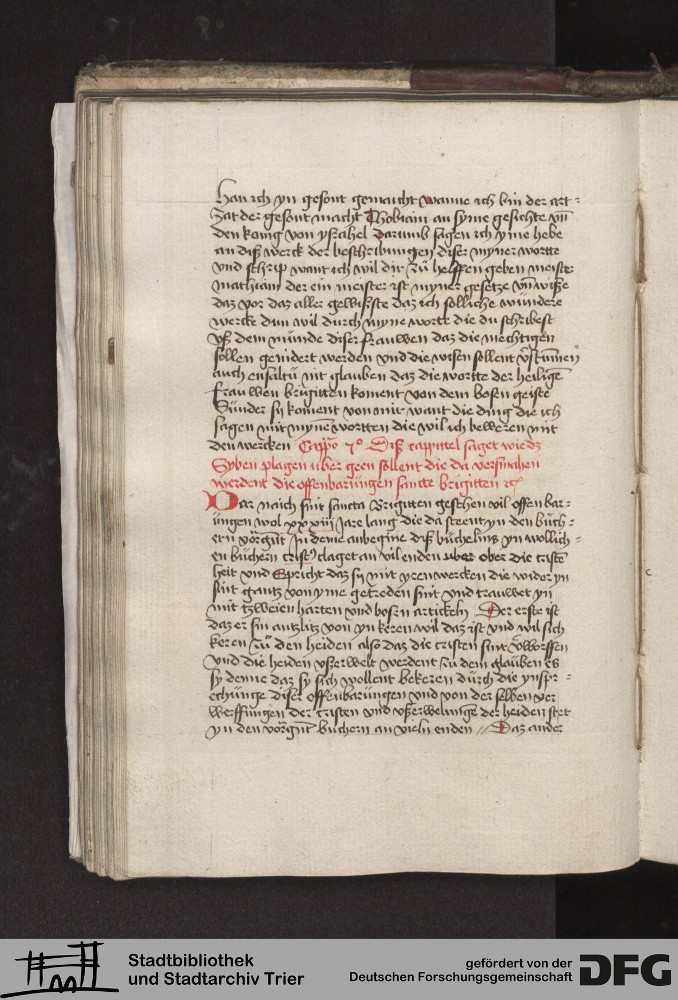 han ich yn gesont gemaicht wanne ich bin der art⸗
zat der gesont macht Thobiam an syme gesichte vn̄
den konig von yszahel Darumb sagen ich yme hebe
an diß werck der beschribungen diser myner wortte
vnd schrip want ich wil dir zü helffen geben meister
mathiam der ein meister ist myner gesetze vn̄ wiße
daz vor daz aller gewißste daz ich solliche wündere
wercke dun wil durch myne worte die du schribest
vß dem münde diser frauwen daz die mechtigen
sollen genidert werden vnd die wisen sollent v̄stümen
auch ensaltü nit glauben daz die wortte der heiligē
frauwen brigitten koment von dem bosen geiste
Sünder sy koment von mir want die ding die ich
sagen mit mynē wortten die wil ich beweren mit
den wercken Cappo 7o Diß cappittel saget wie dz
Syben plagen uber geen sollent die da versmahen
werdent die offenbarüngen sancte brigitten ꝛc
Dar naich sint sancta Brigitten geschen vil offenbar⸗
üngen wol xxxiii Jare lang die da steent yn den büch⸗
ern vorgnt In deme anbegine diß büchelins yn wollich⸗
en büchern crist9 claget an vil enden uber ober die cristē
heit vnd Spricht daz sy mit yren wercken die wider yn
sint gantz von yme getreden sint vnd trauwet yn
mit tzweien harten vnd bosen artickeln Der erste ist
daz er sin antzlitz von yn keren wil daz ist vnd wil sich
keren zü den heiden also daz die cristen sint v̄worffen
vnd die heiden vßerwelt werdent zu dem glauben es
sy denne daz sy sich wollent bekeren dürch die ynspr⸗
echünge diser offenbarüngen vnd von der selben ver
werffüngen der cristen vnd vßerwelunge der heiden stet
yn den vorgnt büchern an vieln enden // Daz ander
Stadtbibliothek
und Stadtarchiv Trier
gefördert von der
Deutschen Forschungsgemeinschaft
DFG